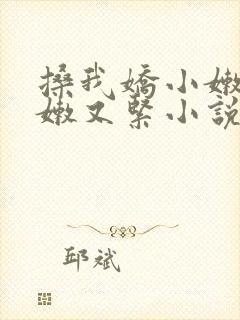 搡我嬌小嫩
嫩又緊小說
邱斌